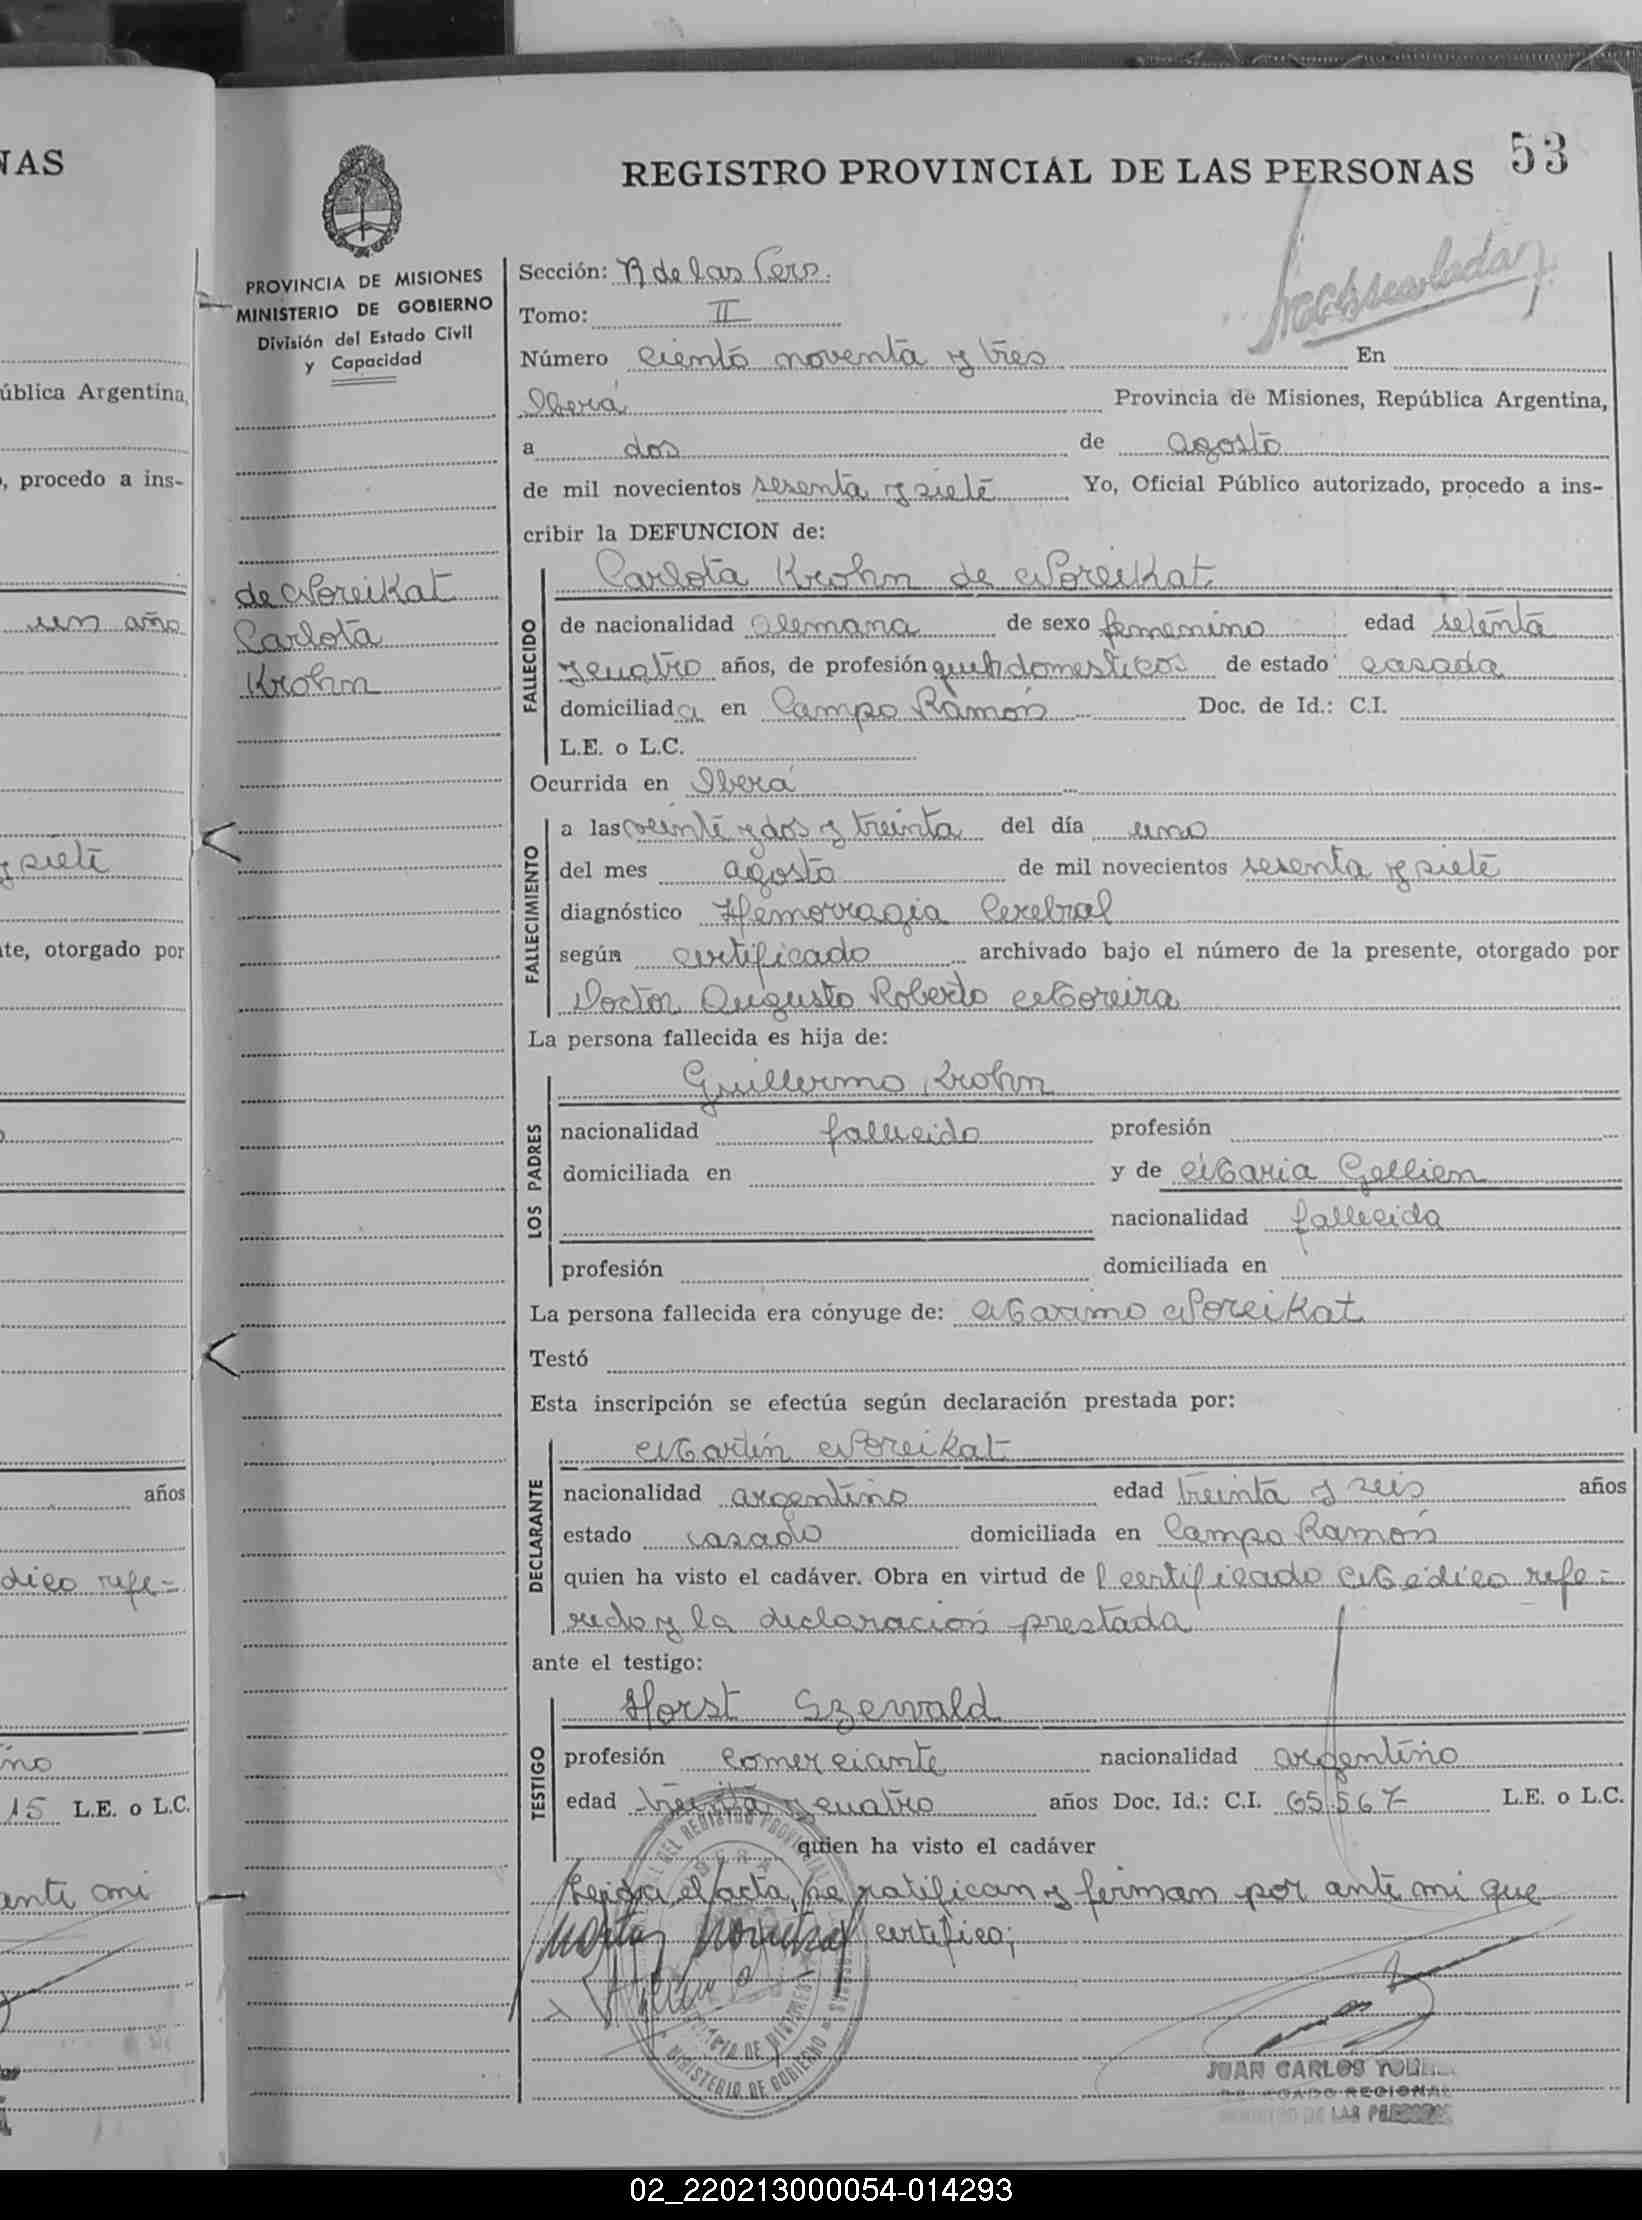 NAS
ública Argentina,
, procedo a ins-
un año
y siete
te, otorgado por
años
dico refe=
15 L.E. o L.C.
ante mi
53
REGISTRO PROVINCIAL DE LAS PERSONAS
PROVINCIA DE MISIONES
MINISTERIO DE GOBIERNO
División del Estado Civil
y Capacidad
de Noreikat
Carlota
Krohn
Sección: R de las Pers.
Tomo: II
Número ciento noventa y tres En
Oberá Provincia de Misiones, República Argentina,
a dos de agosto
de mil novecientos sesenta y siete Yo, Oficial Público autorizado, procedo a ins-
cribir la DEFUNCION de:
FALLECIDO
Carlota Krohn de Noreikat
de nacionalidad Alemana de sexo femenino edad setenta
y cuatro años, de profesión queh domesticos de estado casada
domiciliada en Campo Ramón Doc. de Id.: C.I.
L.E. o L.C.
Ocurrida en Oberá
FALLECIMIENTO
a las veinte y dos y treinta del día uno
del mes agosto de mil novecientos sesenta y siete
diagnóstico Hemorragia Cerebral
según certificado archivado bajo el número de la presente, otorgado por
Doctor Augusto Roberto Moreira
La persona fallecida es hija de:
LOS PADRES
Guillermo Krohn
nacionalidad fallecido profesión
domiciliada en y de Maria Gellien
nacionalidad fallecida
profesión domiciliada en
La persona fallecida era cónyuge de: Maximo Noreikat
Testó
Esta inscripción se efectúa según declaración prestada por:
DECLARANTE
Martín Noreikat
nacionalidad argentino edad treinta y seis años
estado casado domiciliada en Campo Ramón
quien ha visto el cadáver. Obra en virtud del certificado Médico refe=
rido y la declaración prestada
ante el testigo:
TESTIGO
Horst Szewald
profesión comerciante nacionalidad argentino
edad treinta y cuatro años Doc. Id.: C.I. 65.567 L.E. o L.C.
quien ha visto el cadáver
Leida el acta, se ratifican y firman por ante mi que
certifico;
MINISTERIO DE GOBIERNO
JUAN CARLOS
REGIONAL
DE LAS PERSONAS
02_220213000054-014293